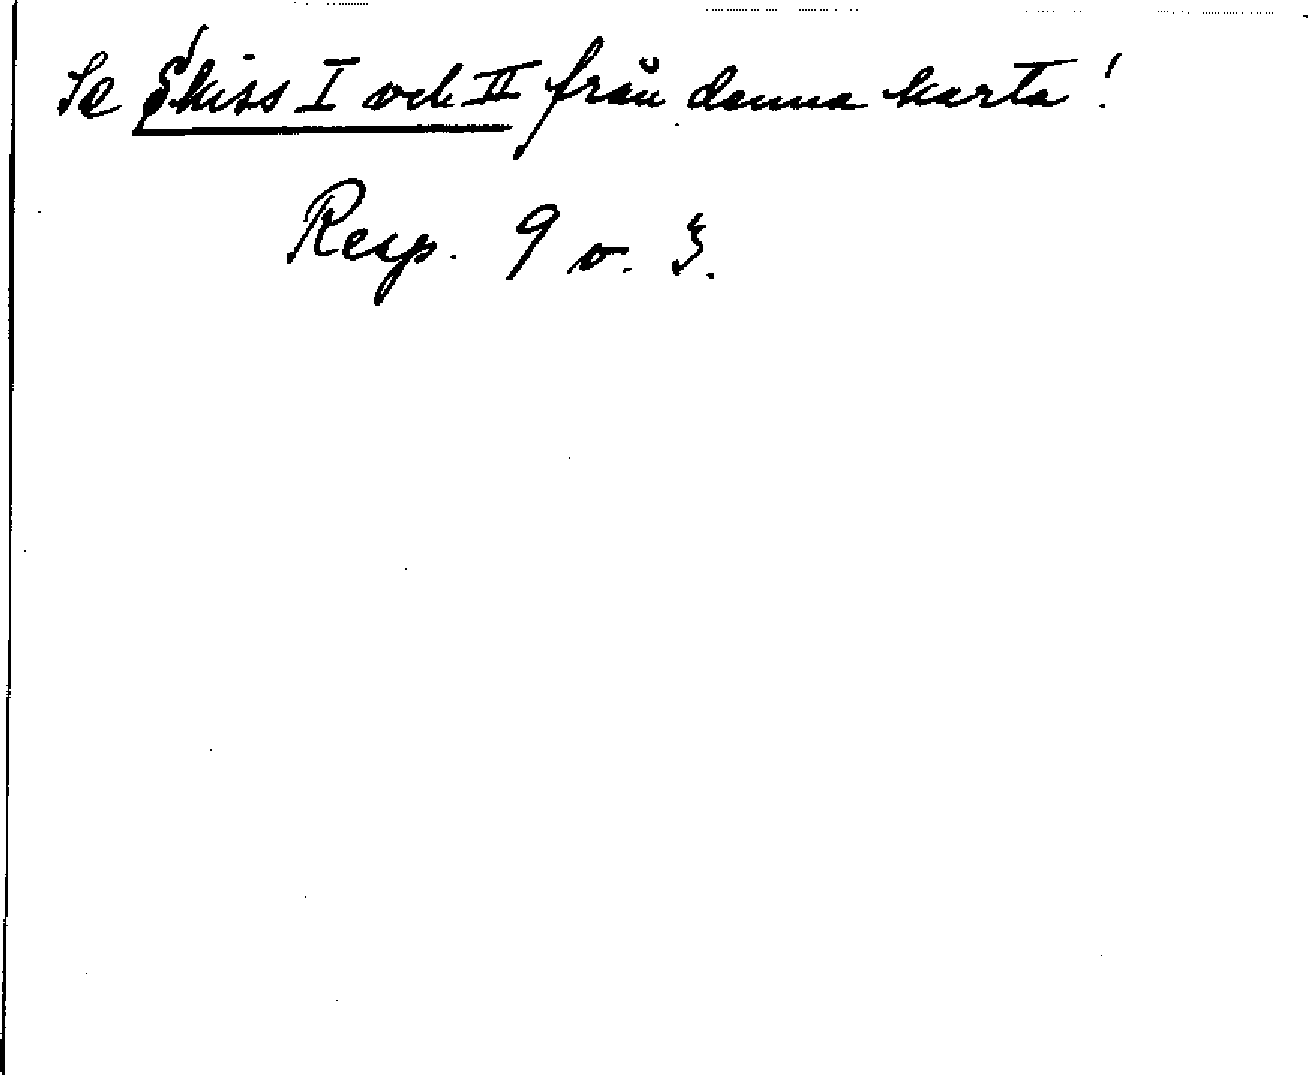 Se Skiss I och II från denna karta!
Resp. 9 o. 3.